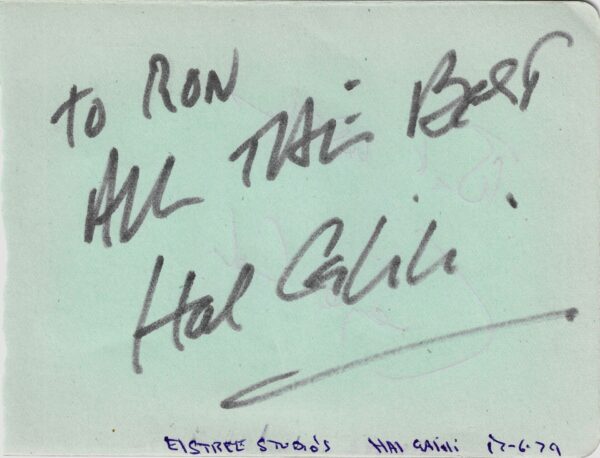 TO RON
ALL THE BEST
Hal Galili
ELSTREE STUDIO'S HAl GAlili 17-6-79